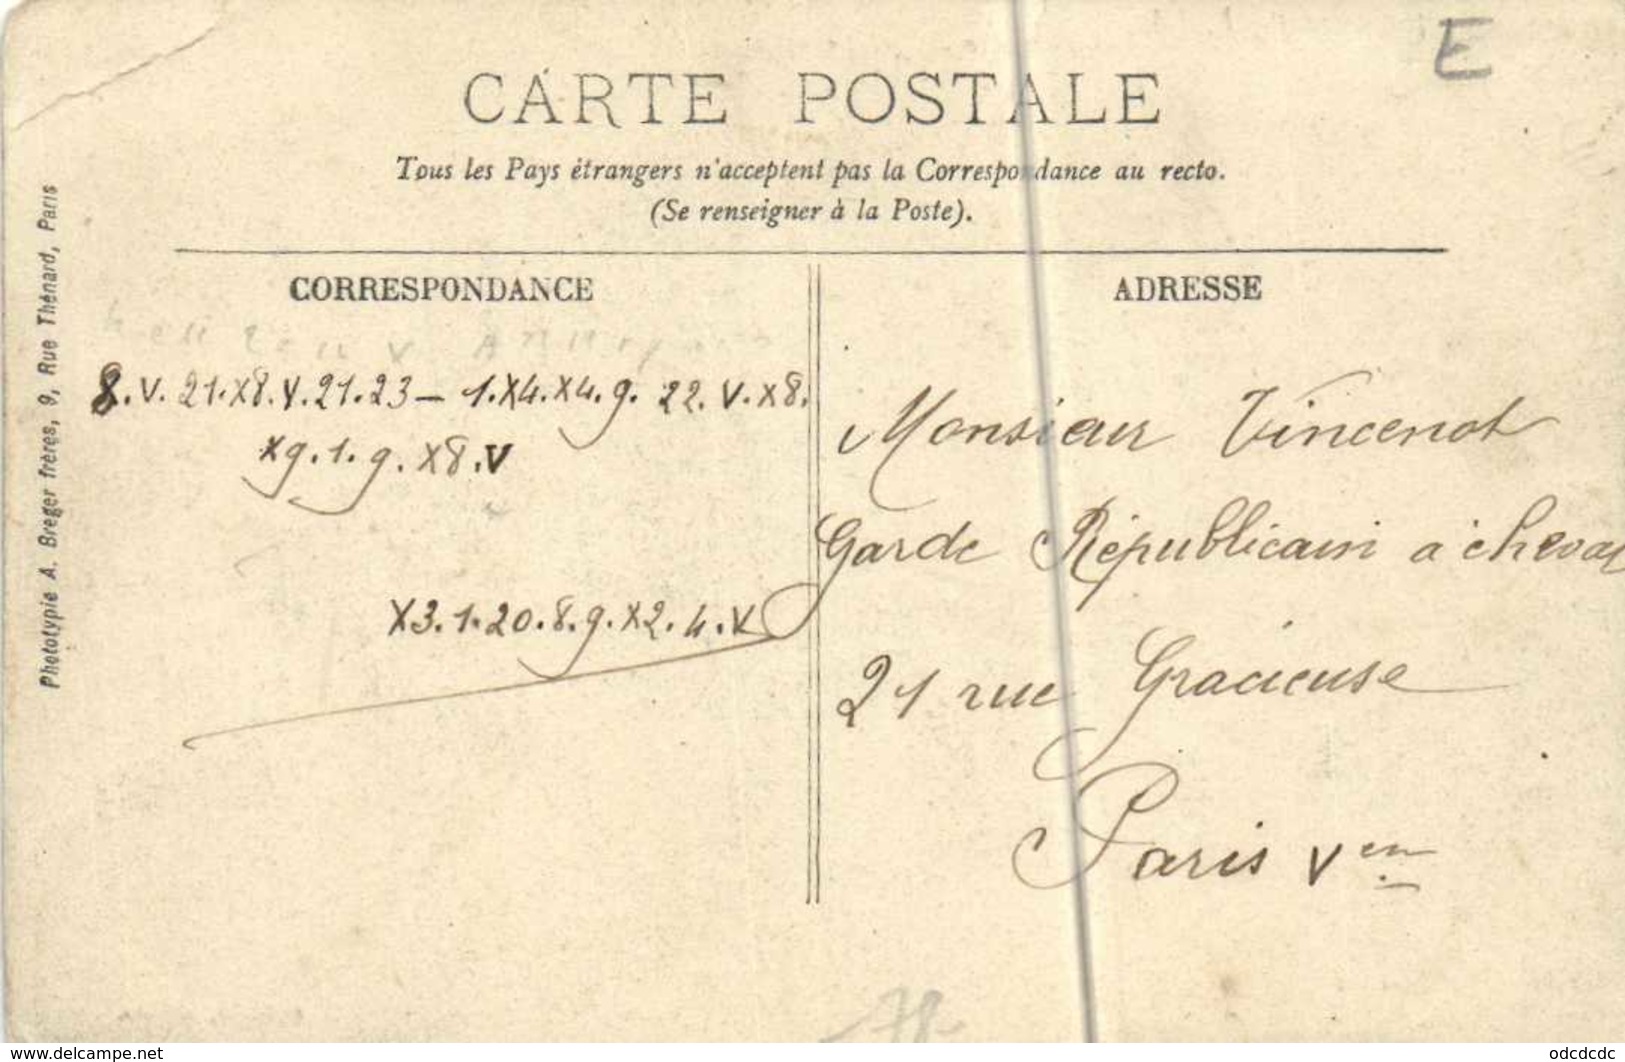 E
CARTE POSTALE
Tous les Pays étrangers n'acceptent pas la Correspondance au recto.
(Se renseigner à la Poste).
Phototypie A. Breger frères, 9, Rue Thénard, Paris
CORRESPONDANCE
8.V.21.X8.V.21.23 — 1.X4.X4.9.22.V.X8.
X9.1.9.X8.V
X3.1.20.8.9.X2.4.V
ADRESSE
Monsieur Vincenot
Garde Républicain à cheval
21 rue Gracieuse
Paris Ven
www.delcampe.net
odcdcdc